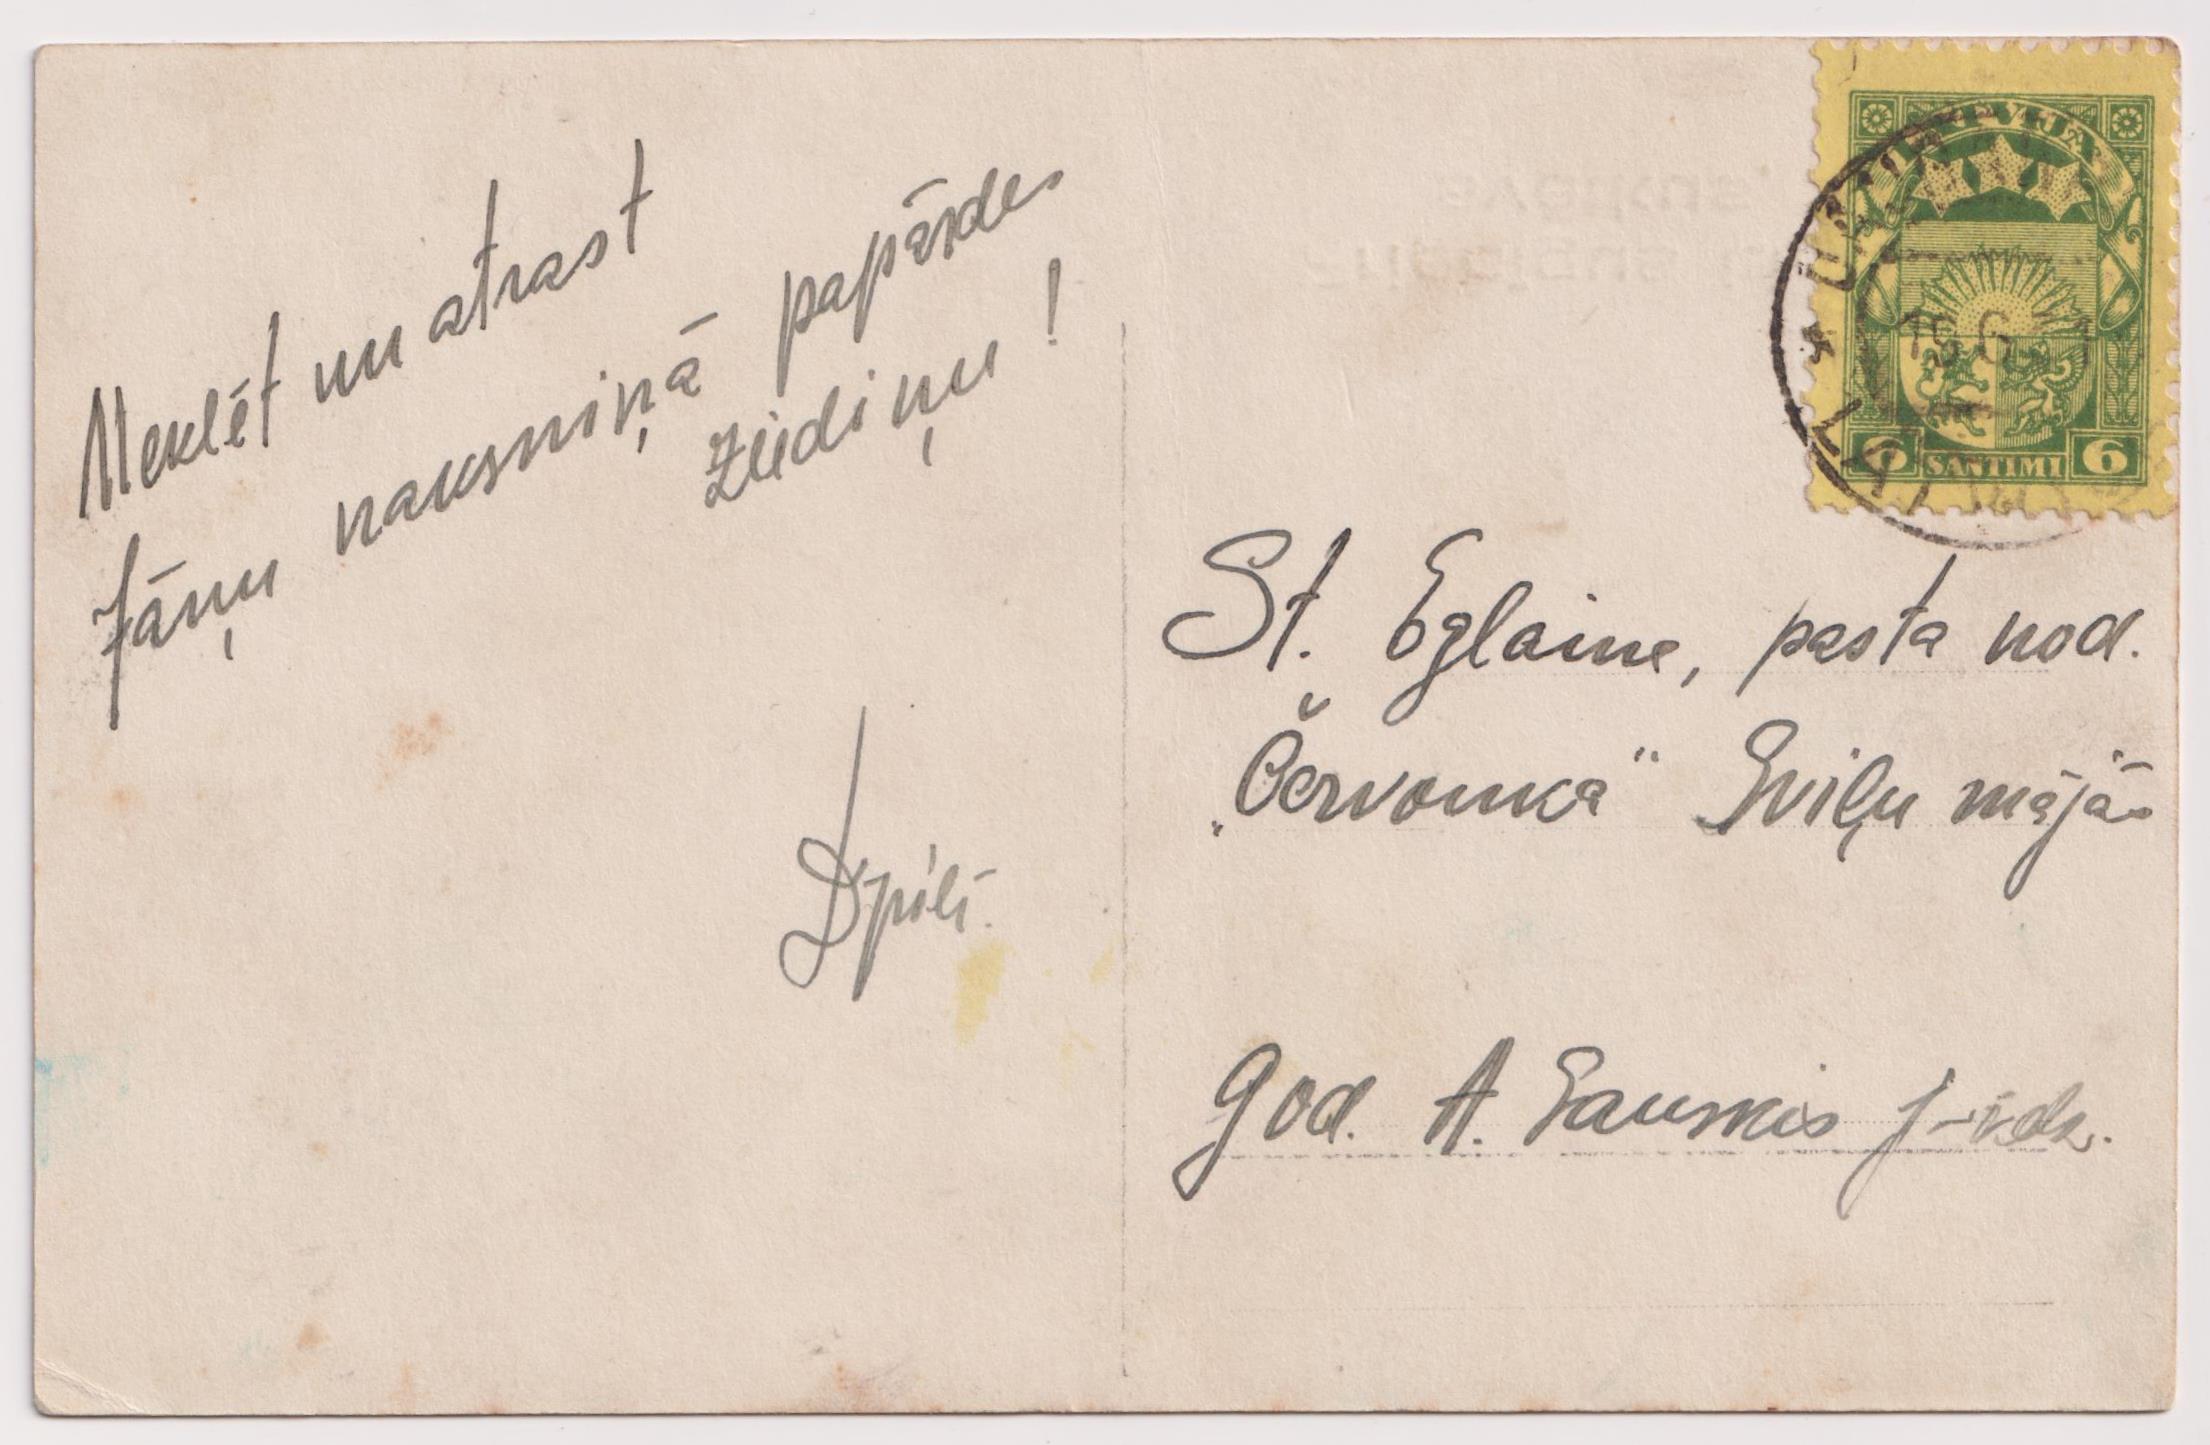 Meklēt un atrast
Jāņu naksniņā papārdes
ziediņu!
Dpilī.
LATVIJA
15 6
6 SANTIMI 6
St. Eglaine, pasta nod.
„Červonka" Eviļu mājās
God. A. Launskis j-dz.